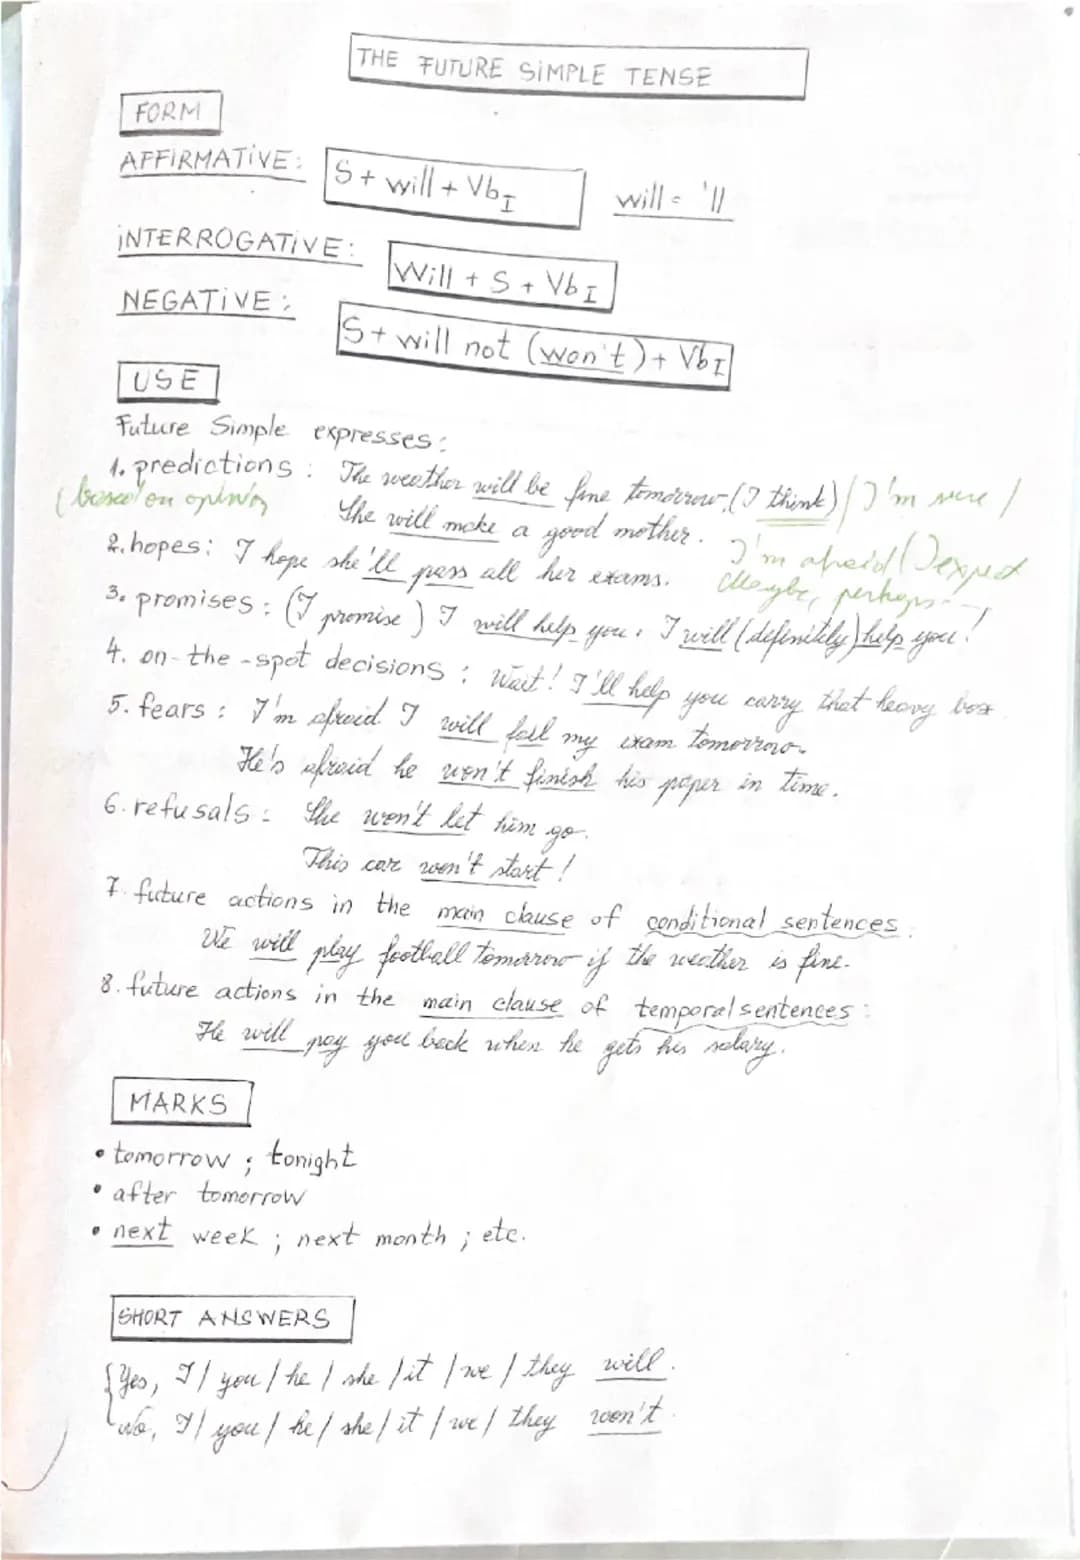 THE FUTURE SIMPLE TENSE
FORM
AFFIRMATIVE: S + will + Vb I will = 'll
INTERROGATIVE: Will + S + Vb I
NEGATIVE: S + will not (won't) + Vb I
USE
Future Simple expresses:
1. predictions: The weather will be fine tomorrow. (I think) / I'm sure /
(based on opinion She will make a good mother. I'm afraid / I expect
2. hopes: I hope she'll pass all her exams. Maybe, perhaps...
3. promises: (I promise) I will help you. I will (definitely) help you!
4. on-the-spot decisions: Wait! I'll help you carry that heavy box
5. fears: I'm afraid I will fail my exam tomorrow.
He's afraid he won't finish his paper in time.
6. refusals: She won't let him go.
This car won't start!
7. future actions in the main clause of conditional sentences:
We will play football tomorrow if the weather is fine.
8. future actions in the main clause of temporal sentences:
He will pay you back when he gets his salary.
MARKS
• tomorrow; tonight
• after tomorrow
• next week; next month; etc.
SHORT ANSWERS
Yes, I / you / he / she / it / we / they will.
No, I / you / he / she / it / we / they won't.